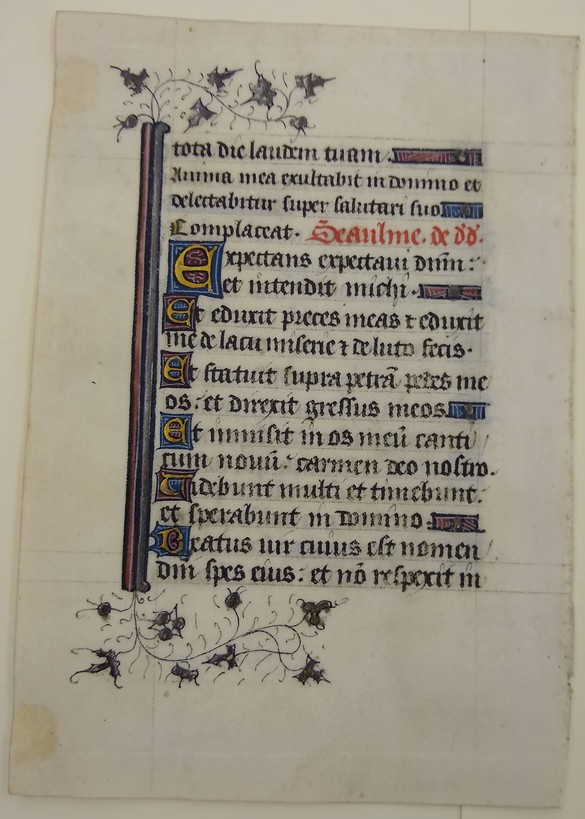 tota die laudem tuam
Anima mea exultabit in domino et
delectabitur super salutari suo
Complaceat. Seaulme. de dd.
Expectans expectaui dñm:
et intendit michi.
Et eduxit preces meas ⁊ eduxit
me de lacu miserie ⁊ de luto fecis.
Et statuit supra petrã pedes me
os: et direxit gressus meos
Et immisit in os meũ canti
cum nouũ: carmen deo nostro.
Uidebunt multi et timebunt:
et sperabunt in domino
Beatus uir cuius est nomen
dñi spes eius: et nõ respexit in